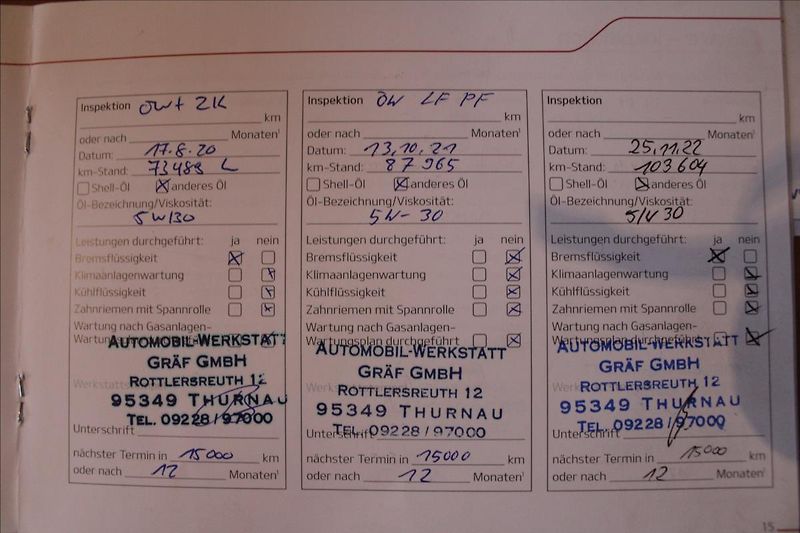 Inspektion ÖW+ ZK
km
oder nach Monaten¹
Datum: 17.8.20
km-Stand: 73489 L
Shell-Öl anderes Öl
Öl-Bezeichnung/Viskosität:
5W130
Leistungen durchgeführt: ja nein
Bremsflüssigkeit
Klimaanlagenwartung
Kühlflüssigkeit
Zahnriemen mit Spannrolle
Wartung nach Gasanlagen-
AUTOMOBIL-WERKSTATT
GRÄF GMBH
ROTTLERSREUTH 12
95349 THURNAU
TEL. 09228/97000
Unterschrift
nächster Termin in 15000 km
oder nach 12 Monaten¹
Inspektion ÖW LF PF
km
oder nach Monaten¹
Datum: 13.10.21
km-Stand: 87965
Shell-Öl anderes Öl
Öl-Bezeichnung/Viskosität:
5W-30
Leistungen durchgeführt: ja nein
Bremsflüssigkeit
Klimaanlagenwartung
Kühlflüssigkeit
Zahnriemen mit Spannrolle
Wartung nach Gasanlagen-
Wartungsplan durchgeführt
AUTOMOBIL-WERKSTATT
GRÄF GMBH
ROTTLERSREUTH 12
95349 THURNAU
TEL. 09228/97000
Unterschrift
nächster Termin in 15000 km
oder nach 12 Monaten¹
Inspektion
km
oder nach Monaten¹
Datum: 25.11.22
km-Stand: 103604
Shell-Öl anderes Öl
Öl-Bezeichnung/Viskosität:
5W30
Leistungen durchgeführt: ja nein
Bremsflüssigkeit
Klimaanlagenwartung
Kühlflüssigkeit
Zahnriemen mit Spannrolle
Wartung nach Gasanlagen-
Wartungsplan durchgeführt
AUTOMOBIL-WERKSTATT
GRÄF GMBH
ROTTLERSREUTH 12
95349 THURNAU
TEL. 09228/97000
Unterschrift
nächster Termin in 15000 km
oder nach 12 Monaten¹
15